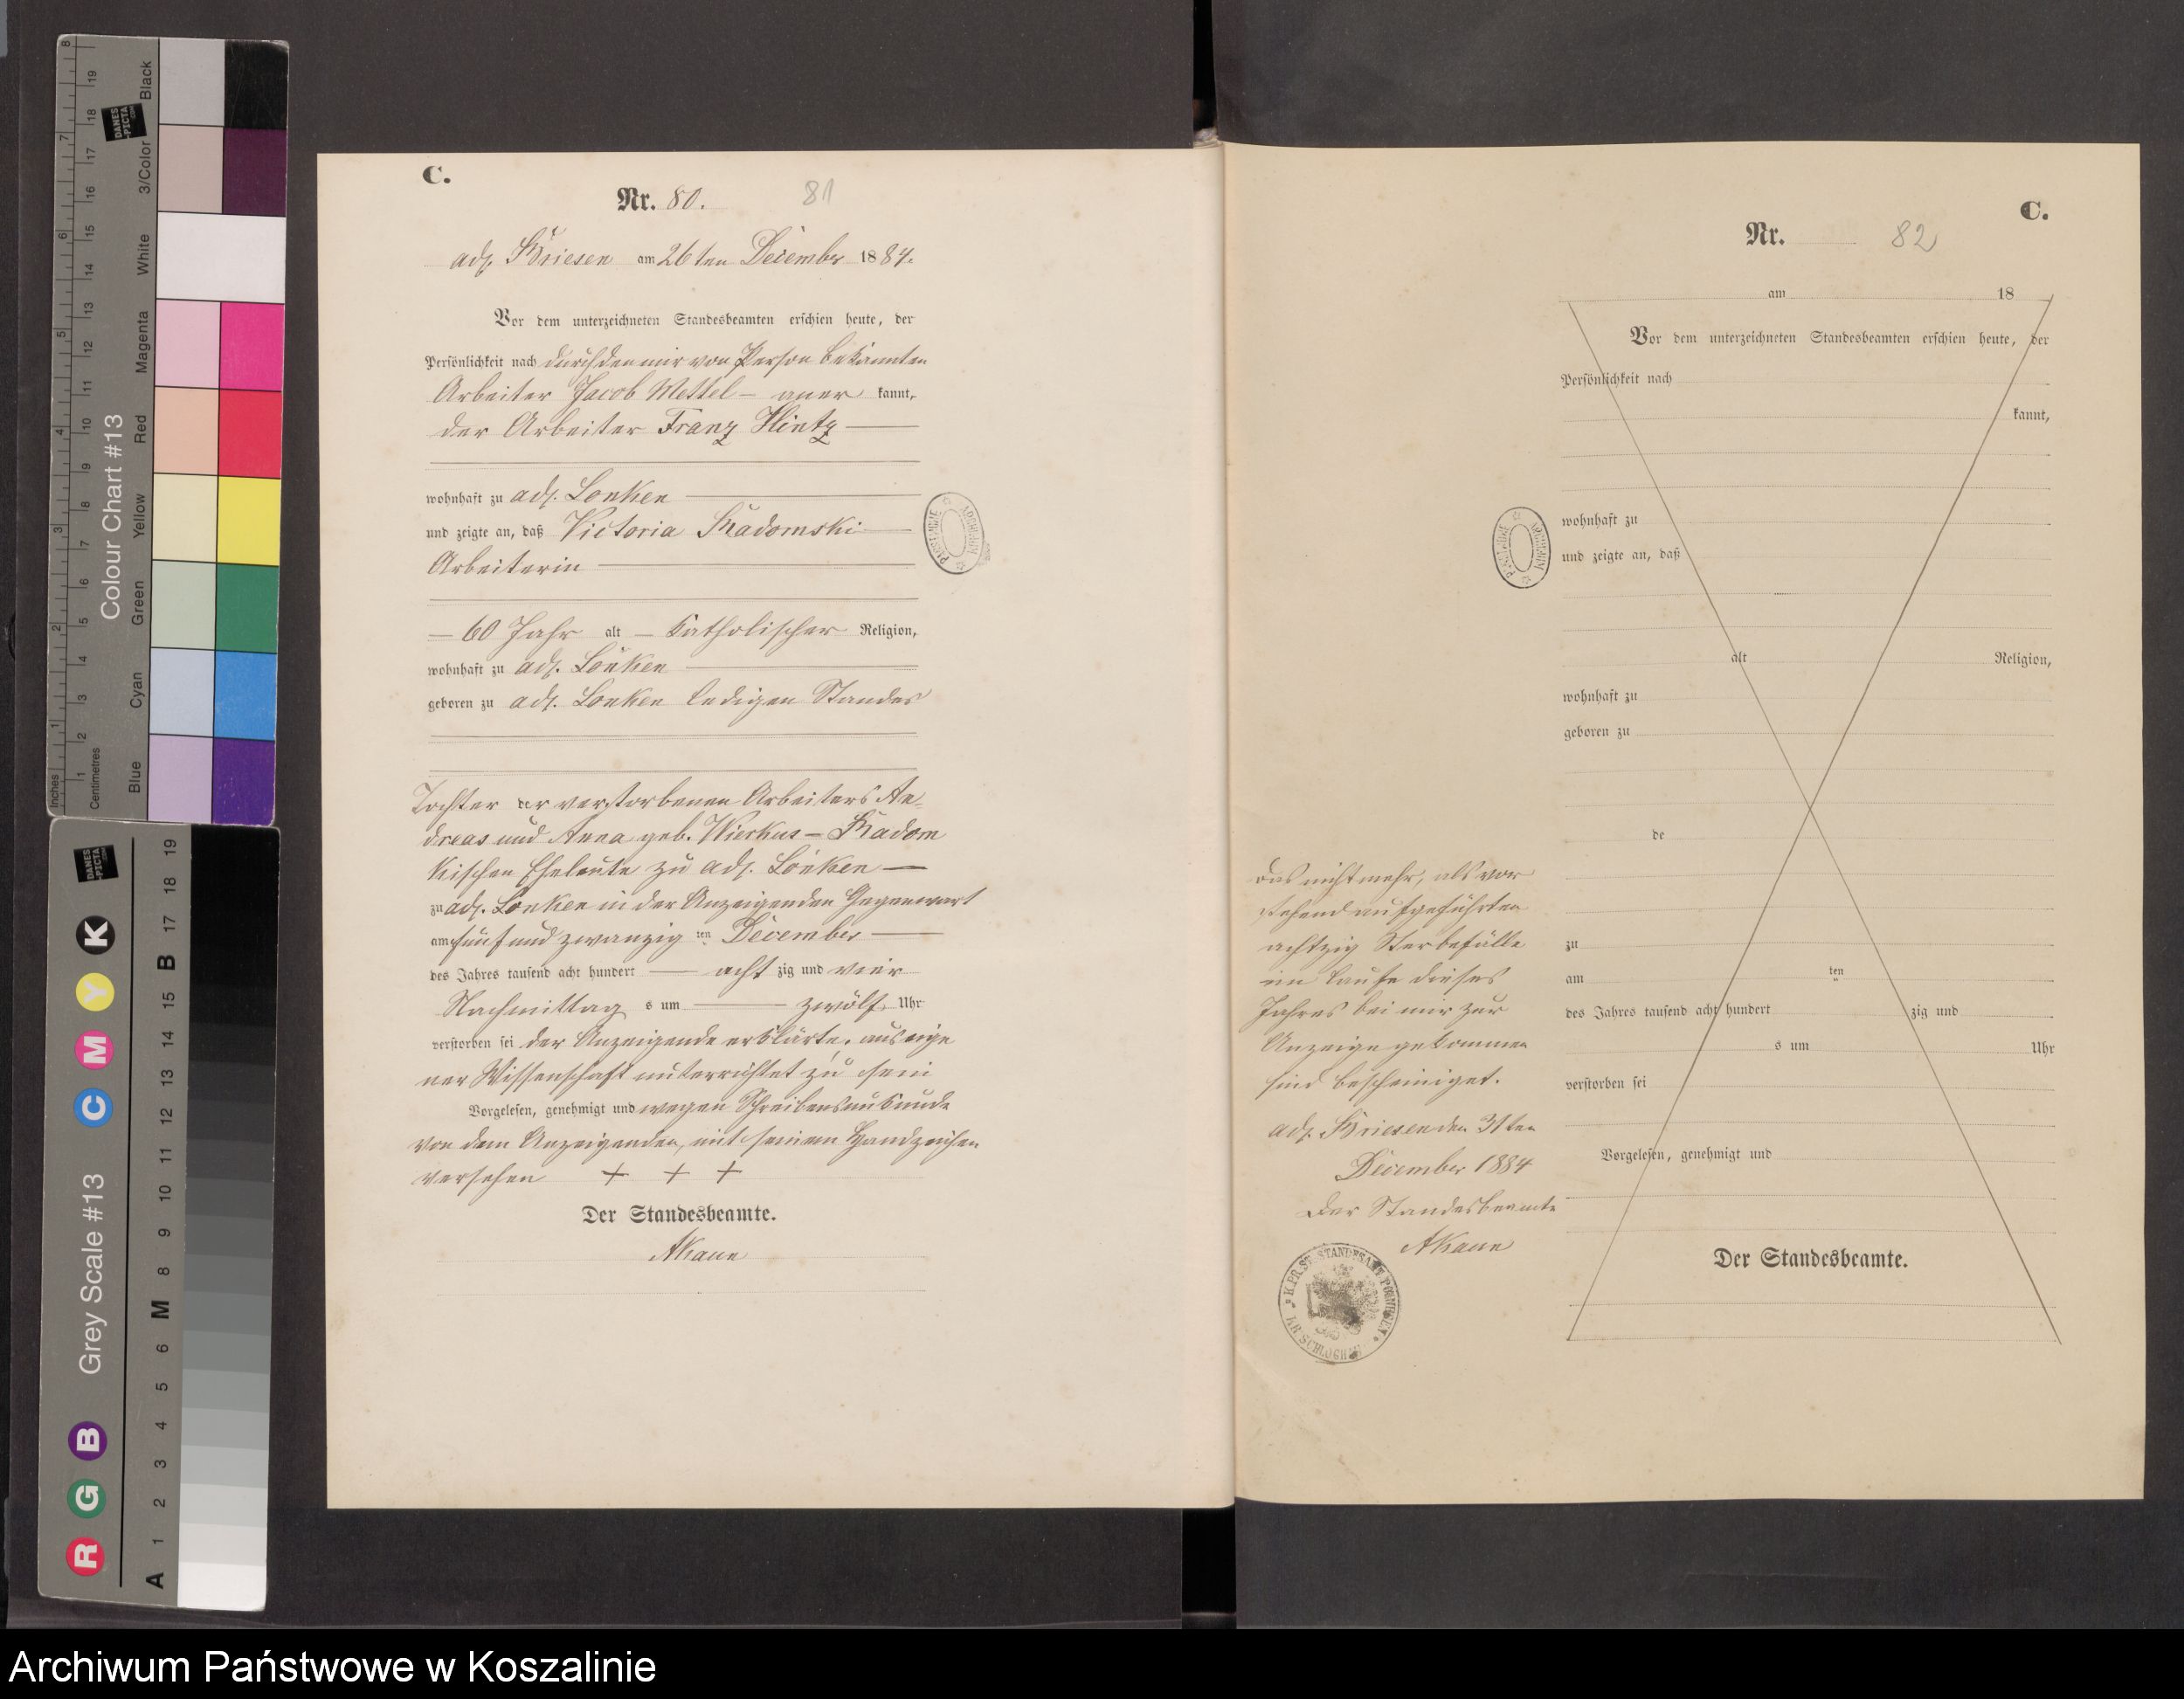 C.
Nr. 80. 81
adl. Briesen am 26ten December 1884.
Vor dem unterzeichneten Standesbeamten erschien heute, der
Persönlichkeit nach durch den mir von Person bekannten
Arbeiter Jacob Mettel – aner kannt,
der Arbeiter Franz Hintz
wohnhaft zu adl. Lonken
und zeigte an, daß Victoria Radomski
Arbeiterin
– 60 Jahr alt – katholischer Religion,
wohnhaft zu adl. Lonken
geboren zu adl. Lonken ledigen Standes
Tochter der verstorbenen Arbeiters An-
dreas und Anna geb. Wierkus – Radom
skischen Eheleute zu adl. Lonken –
zu adl. Lonken in der Anzeigenden Gegenwart
am fünf und zwanzig ten December
des Jahres tausend acht hundert acht zig und vier
Nachmittag s um zwölf Uhr
verstorben sei der Anzeigende erklärte, aus eige
ner Wissenschaft unterrichtet zu sein
Vorgelesen, genehmigt und wegen Schreibensunkunde
von dem Anzeigenden, mit seinem Handzeichen
versehen + + +
Der Standesbeamte.
AKaun
C.
Nr. 82
am 18
Vor dem unterzeichneten Standesbeamten erschien heute, der
Persönlichkeit nach
kannt,
wohnhaft zu
und zeigte an, daß
alt Religion,
wohnhaft zu
geboren zu
de
zu
am ten
des Jahres tausend acht hundert zig und
s um Uhr
verstorben sei
Vorgelesen, genehmigt und
Der Standesbeamte.
Das nicht mehr, als vor
stehend aufgeführten
achtzig Sterbefälle
im Laufe dieses
Jahres bei mir zur
Anzeige gekommen
sind bescheiniget.
adl. Briesen den 31ten
December 1884
Der Standesbeamte
AKaun
K. PR. ST. STANDESAMT
KR. SCHLOCHAU
Colour Chart #13
Blue Cyan Green Yellow Red Magenta White 3/Color Black
Inches
Centimetres
DANES PICTA .COM
Grey Scale #13
R G B C M Y K
A 1 2 3 4 5 6 M 8 9 10 11 12 13 14 15 B 17 18 19
Archiwum Państwowe w Koszalinie